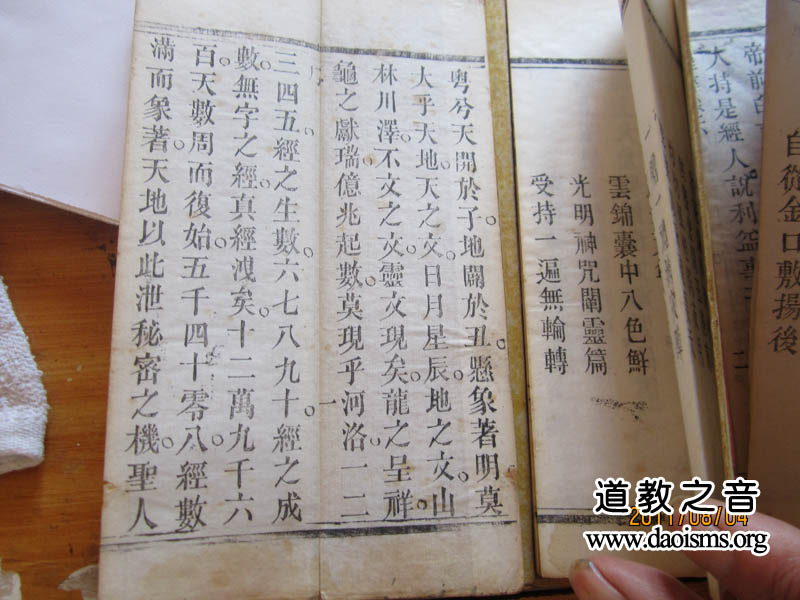 自從金口敷揚後
帝前
大持是經人說利益事
二
雲錦囊中八色鮮
光明神咒闡靈篇
受持一遍無輪轉
粤兮天開於子。地闢於丑。懸象著明莫
大乎天地。天之文。日月星辰。地之文。山
林川澤。不文之文。靈文現矣。龍之呈祥。
龜之獻瑞。億兆起數。莫現乎河洛。一二
一
三四五經之生數。六七八九十經之成
數。無字之經。真經洩矣。十二萬九千六
百。天數周而復始。五千四十零八。經數
滿而象著。天地以此泄秘密之機。聖人
道教之音
2011/08/04
www.daoisms.org